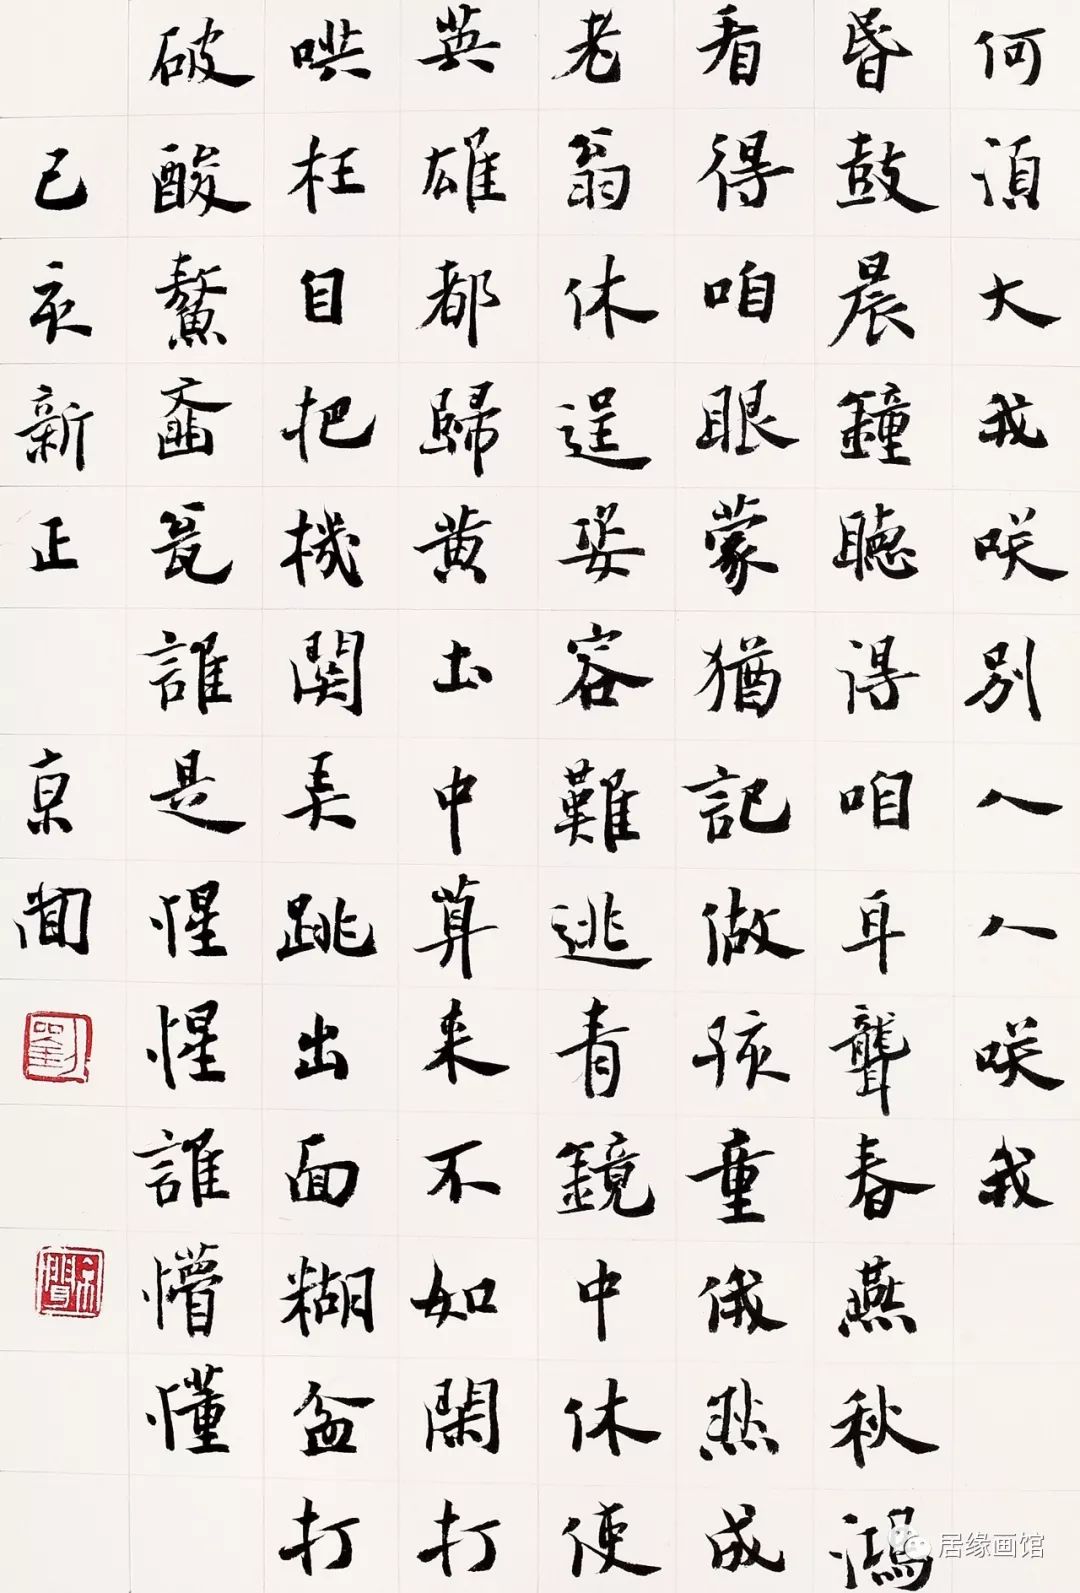 何湏大我咲別人人咲我
昏鼓晨鐘聽得咱耳聾春燕秋鴻
看得咱眼蒙猶記做孩童俄然成
老翁休逞姿容難逃青鏡中休使
英雄都歸黄土中算来不如閑打
哄枉自把機関弄跳出面糊盆打
破酸鰲齏瓮誰是惺惺誰懵懂
己亥新正 亰
劉
居缘画馆